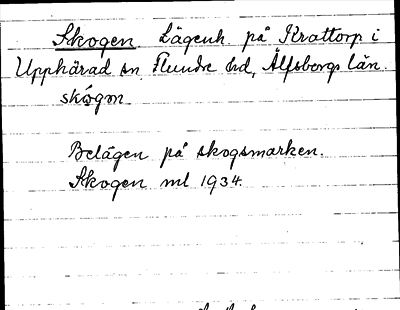 Skogen. Lägenh. på Krattorp i
Upphärad sn, Flundre hd, Älfsborgs län.
skó̀gən
Belägen på skogsmarken.
Skogen ml 1934.